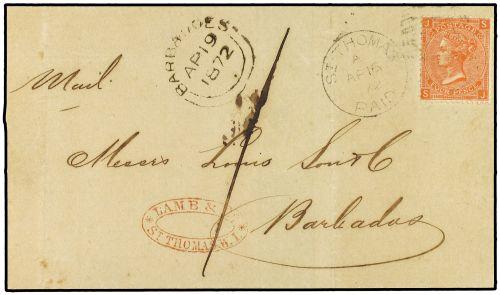 BARBADOES
AP 19
1872
ST THOMAS
A
AP 15
72
PAID
J S
POSTAGE
FOUR PENCE
S J
Mail.
1
Messrs Louis Son & C
LAMB &
ST THOMAS W.I.
Barbados